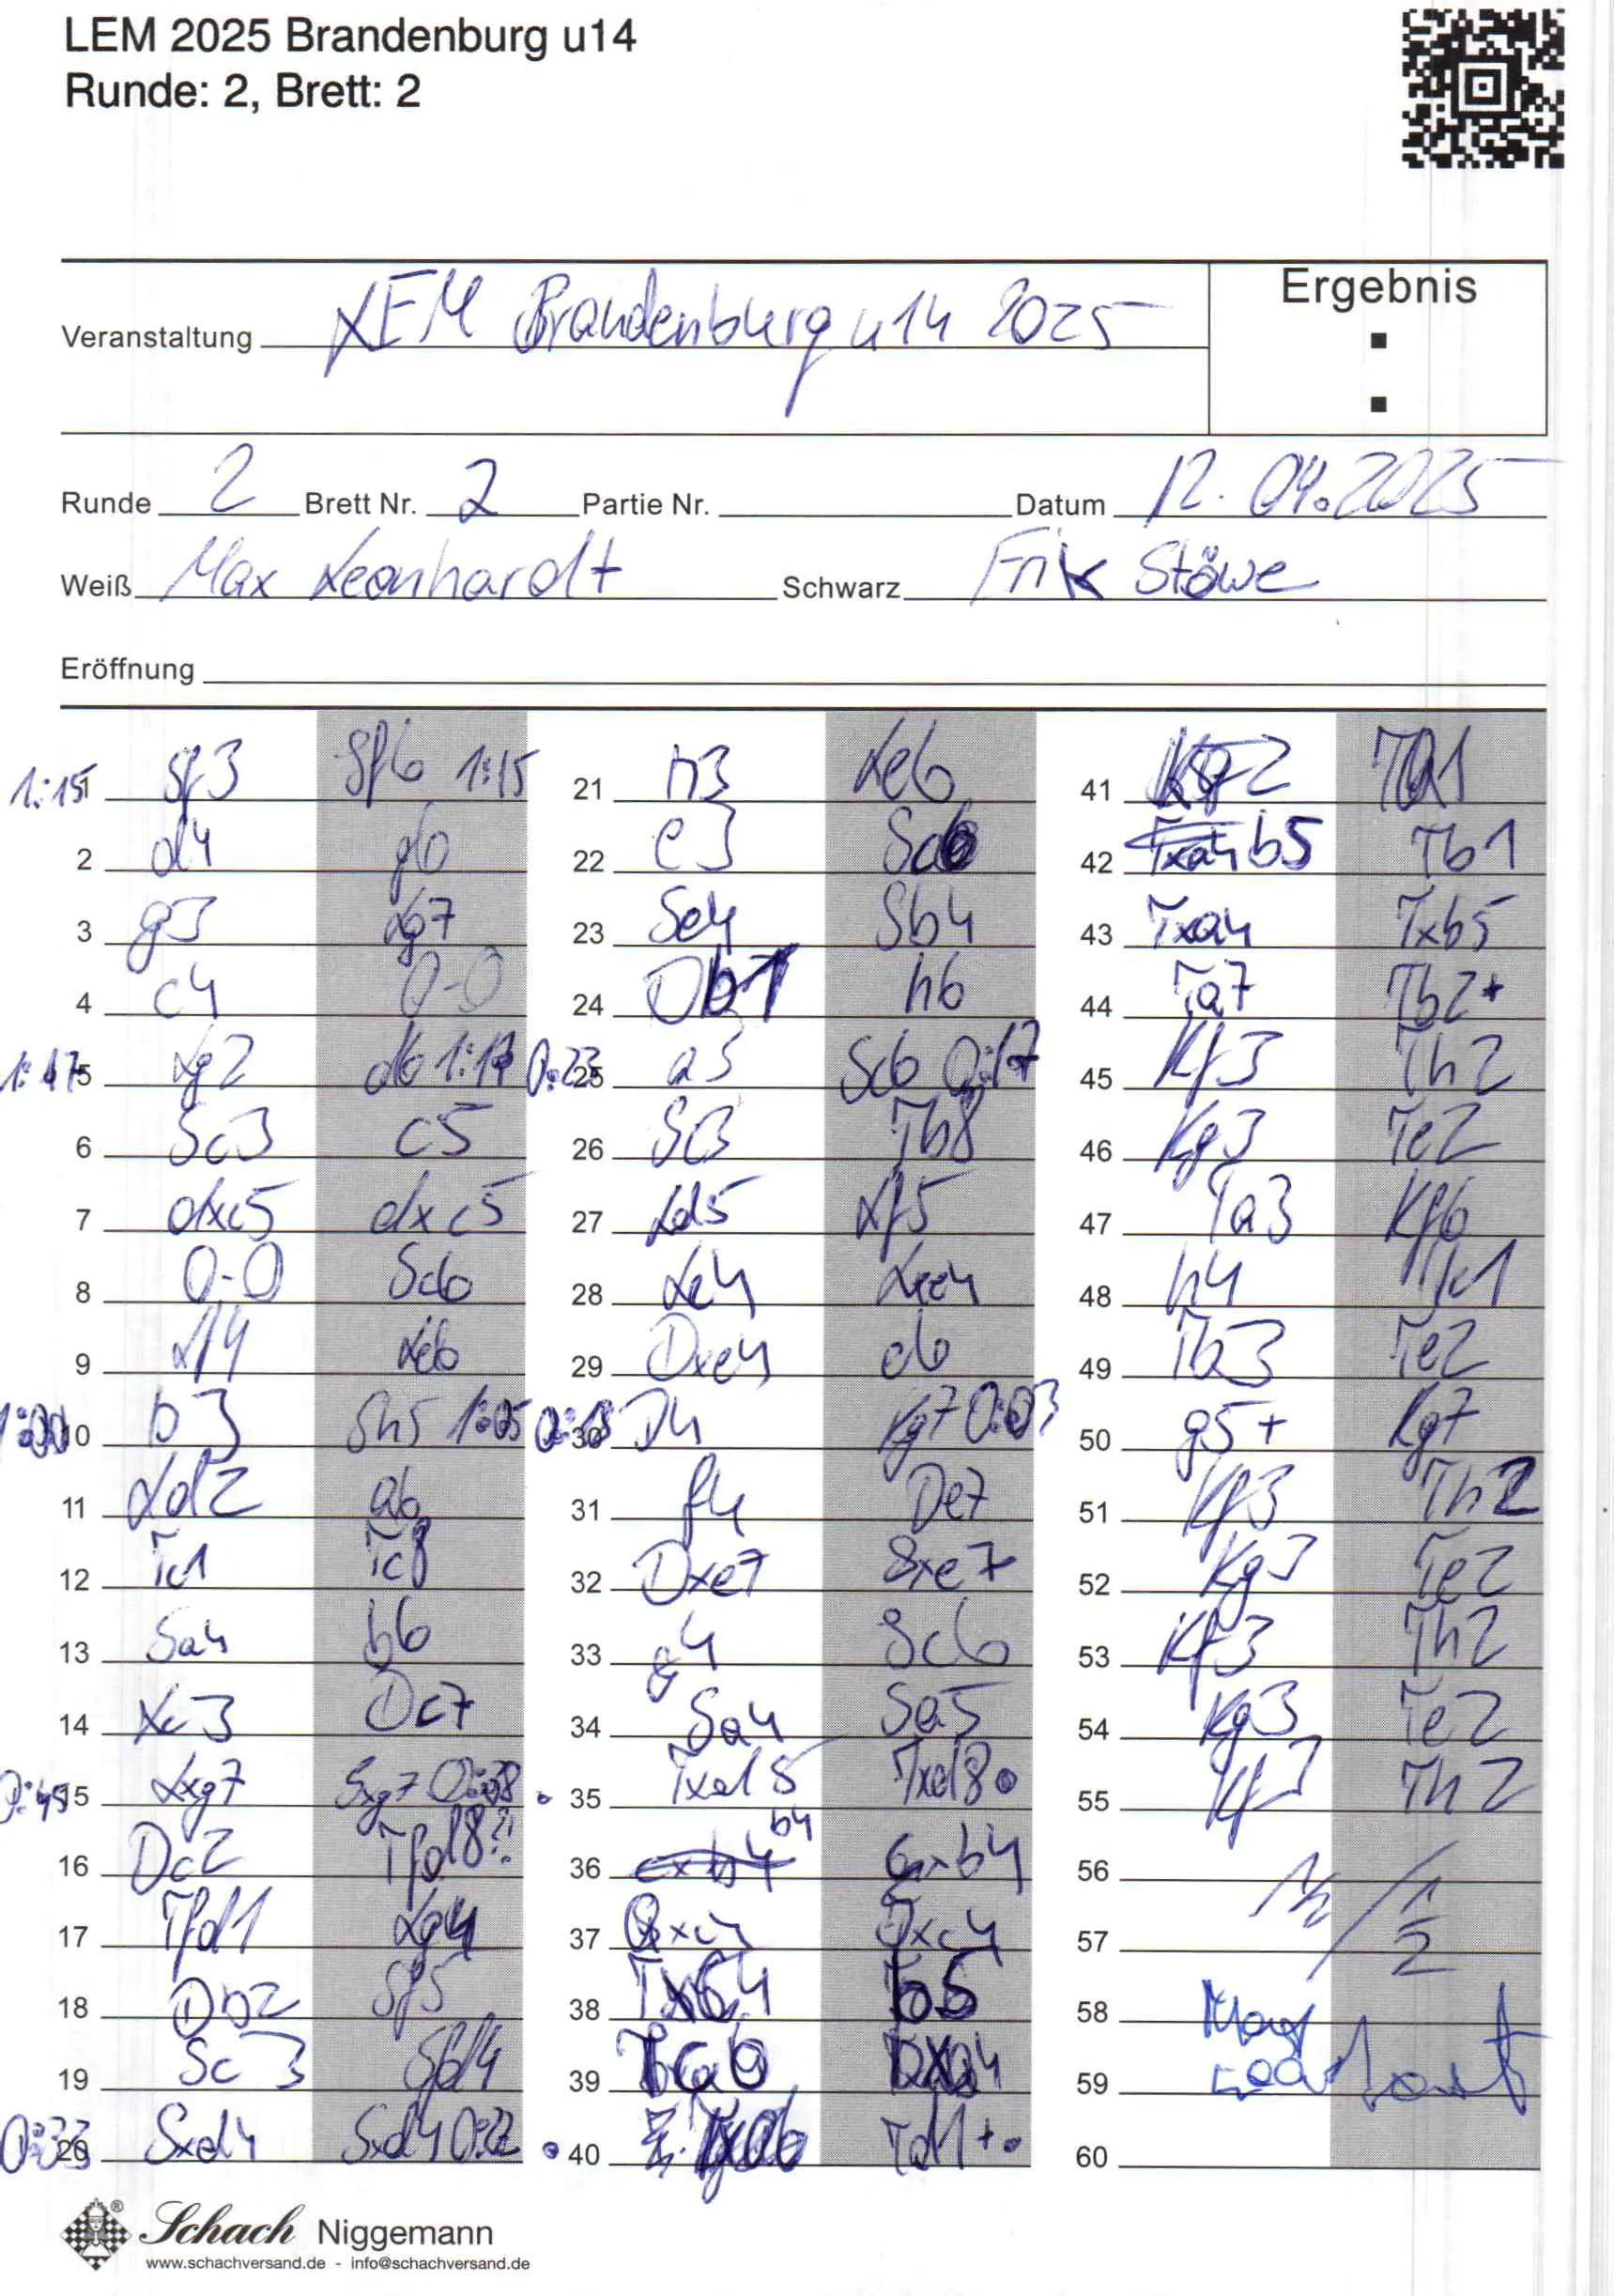 LEM 2025 Brandenburg u14
Runde: 2, Brett: 2
Ergebnis
Veranstaltung LEM Brandenburg u14 2025
:
Runde 2 Brett Nr. 2 Partie Nr. Datum 12.04.2025
Weiß Max Leonhardt Schwarz Erik Stöwe
Eröffnung
1:15 1 Sf3 Sf6 1:15
2 d4 g6
3 g3 Lg7
4 c4 0-0
1:17 5 Lg2 d6 1:17
6 Sc3 c5
7 dxc5 dxc5
8 0-0 Sc6
9 Lf4 Le6
10 b3 Sh5 1:05
11 Ld2 a6
12 Tc1 Tc8
13 Sa4 b6
14 Lc3 Dc7
0:45 15 Lxg7 Sxg7
16 Dc2 Tfd8?!
17 Tfd1 Lg4
18 Db2 Sf5
19 Sc3 Sfd4
0:33 20 Sxd4 Sxd4 0:22
21 h3 Le6
22 e3 Sc6
23 Se4 Sb4
24 Db1 h6
0:23 25 a3 Sc6 0:17
26 Sc3 Tb8
27 Ld5 Lf5
28 Le4 Lxe4
29 Dxe4 e6
30 Kg7 0:03
31 f4 De7
32 Dxe7 Sxe7
33 g4 Sc6
34 Sa4 Sa5
35 Txd8 Txd8
36 b4 cxb4
37 Sxc4
38 Txb4 b5
39 bxa4
40 Txa6 Td1+
41 Kg2 Ta1
42 b5 Tb1
43 Txa4 Txb5
44 Ta7 Tb2+
45 Kf3 Th2
46 Kg3 Te2
47 Ta3 Kf6
48 h4 Te1
49 Tb3 Te2
50 g5+ Kg7
51 Kf3 Th2
52 Kg3 Te2
53 Kf3 Th2
54 Kg3 Te2
55 Kf3 Th2
56 ½ / ½
57
58 Max
59
60
Schach Niggemann
www.schachversand.de - info@schachversand.de